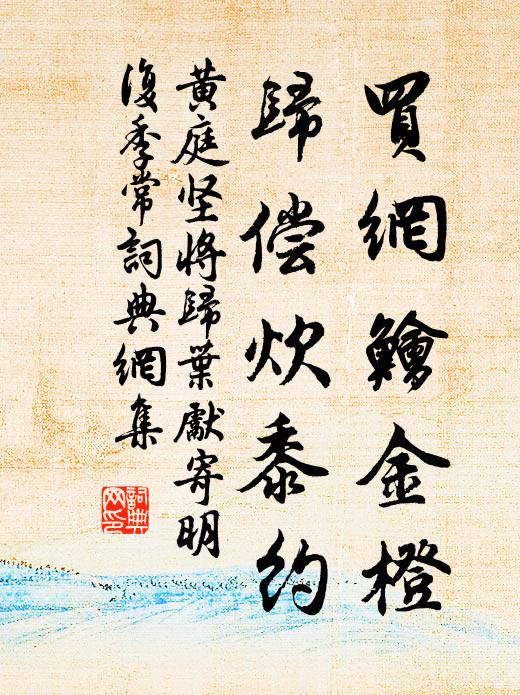 買網鱠金橙
歸偿炊黍约
黄庭坚將歸葉獻寄明
復季常詞典網集
詞典
网印